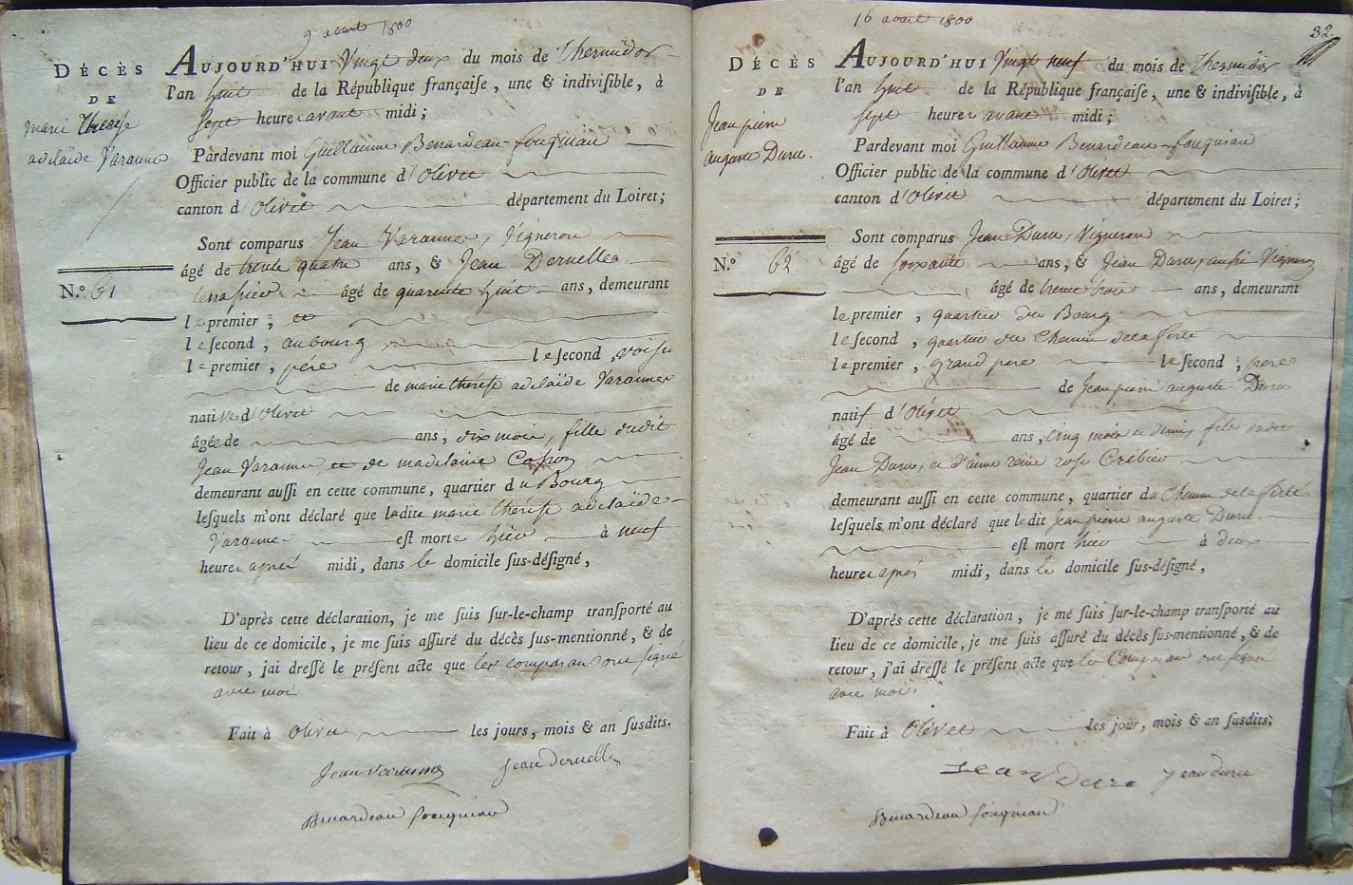 9 aout 1800
DÉCÈS
DE
marie Therese
adelaïde Varanne
N.º 61
AUJOURD'HUI Vingt deux du mois de Thermidor
l'an huit de la République françaiſe, une & indiviſible, à
ſept heures avant midi;
Pardevant moi Guillaume Benardeau fouquiau
Officier public de la commune d'Olivet
canton d'Olivet département du Loiret;
Sont comparus Jean Varanne, Vigneron
âgé de trente quatre ans, & Jean Deruelle
âgé de quarente huit ans, demeurant
le premier, et
le ſecond, au bourg
le premier, pére le ſecond, voisin
de marie thérése adelaïde Varanne
native d'Olivet
âgée de ans, dix mois, fille dudit
Jean Varanne, et de madelaine
demeurant auſſi en cette commune, quartier du Bourg
leſquels m'ont déclaré que ladite marie thérése adelaïde
Varanne eſt morte hier à neuf
heures aprés midi, dans le domicile ſus-déſigné,
D'après cette déclaration, je me ſuis ſur-le-champ tranſporté au
lieu de ce domicile, je me ſuis aſſuré du décès ſus-mentionné, & de
retour, j'ai dreſſé le préſent acte que les comparans ont signé
avec moi
Fait à Olivet les jours, mois & an ſusdits.
Jean Varanne Jean deruelle
Benardeau fouquiau
16 aout 1800
32
DÉCÈS
DE
Jean pierre
auguste Duru.
N.º 62
AUJOURD'HUI Vingt neuf du mois de Thermidor
l'an huit de la République françaiſe, une & indiviſible, à
ſept heures avant midi;
Pardevant moi Guillaume Benardeau fouquiau
Officier public de la commune d'Olivet
canton d'Olivet département du Loiret;
Sont comparus Jean Duru, Vigneron
âgé de soixante ans, & Jean Duru, aussi Vigneron
âgé de trente trois ans, demeurant
le premier, quartier du Bourg
le ſecond, quartier du Chemin de la ferté
le premier, grand pere le ſecond, pere
de Jean pierre auguste Duru
natif d'Olivet
âgé de ans, cinq mois et demi, fils dudit
Jean Duru, et d'anne reine rose Crébier
demeurant auſſi en cette commune, quartier du Chemin de la ferté
leſquels m'ont déclaré que ledit Jean pierre auguste Duru
eſt mort hier à deux
heures aprés midi, dans le domicile ſus-déſigné,
D'après cette déclaration, je me ſuis ſur-le-champ tranſporté au
lieu de ce domicile, je me ſuis aſſuré du décès ſus-mentionné, & de
retour, j'ai dreſſé le préſent acte que les Comparans ont signé
avec moi.
Fait à Olivet les jour, mois & an ſusdits;
Jean Duru Jean duru
Benardeau fouquiau